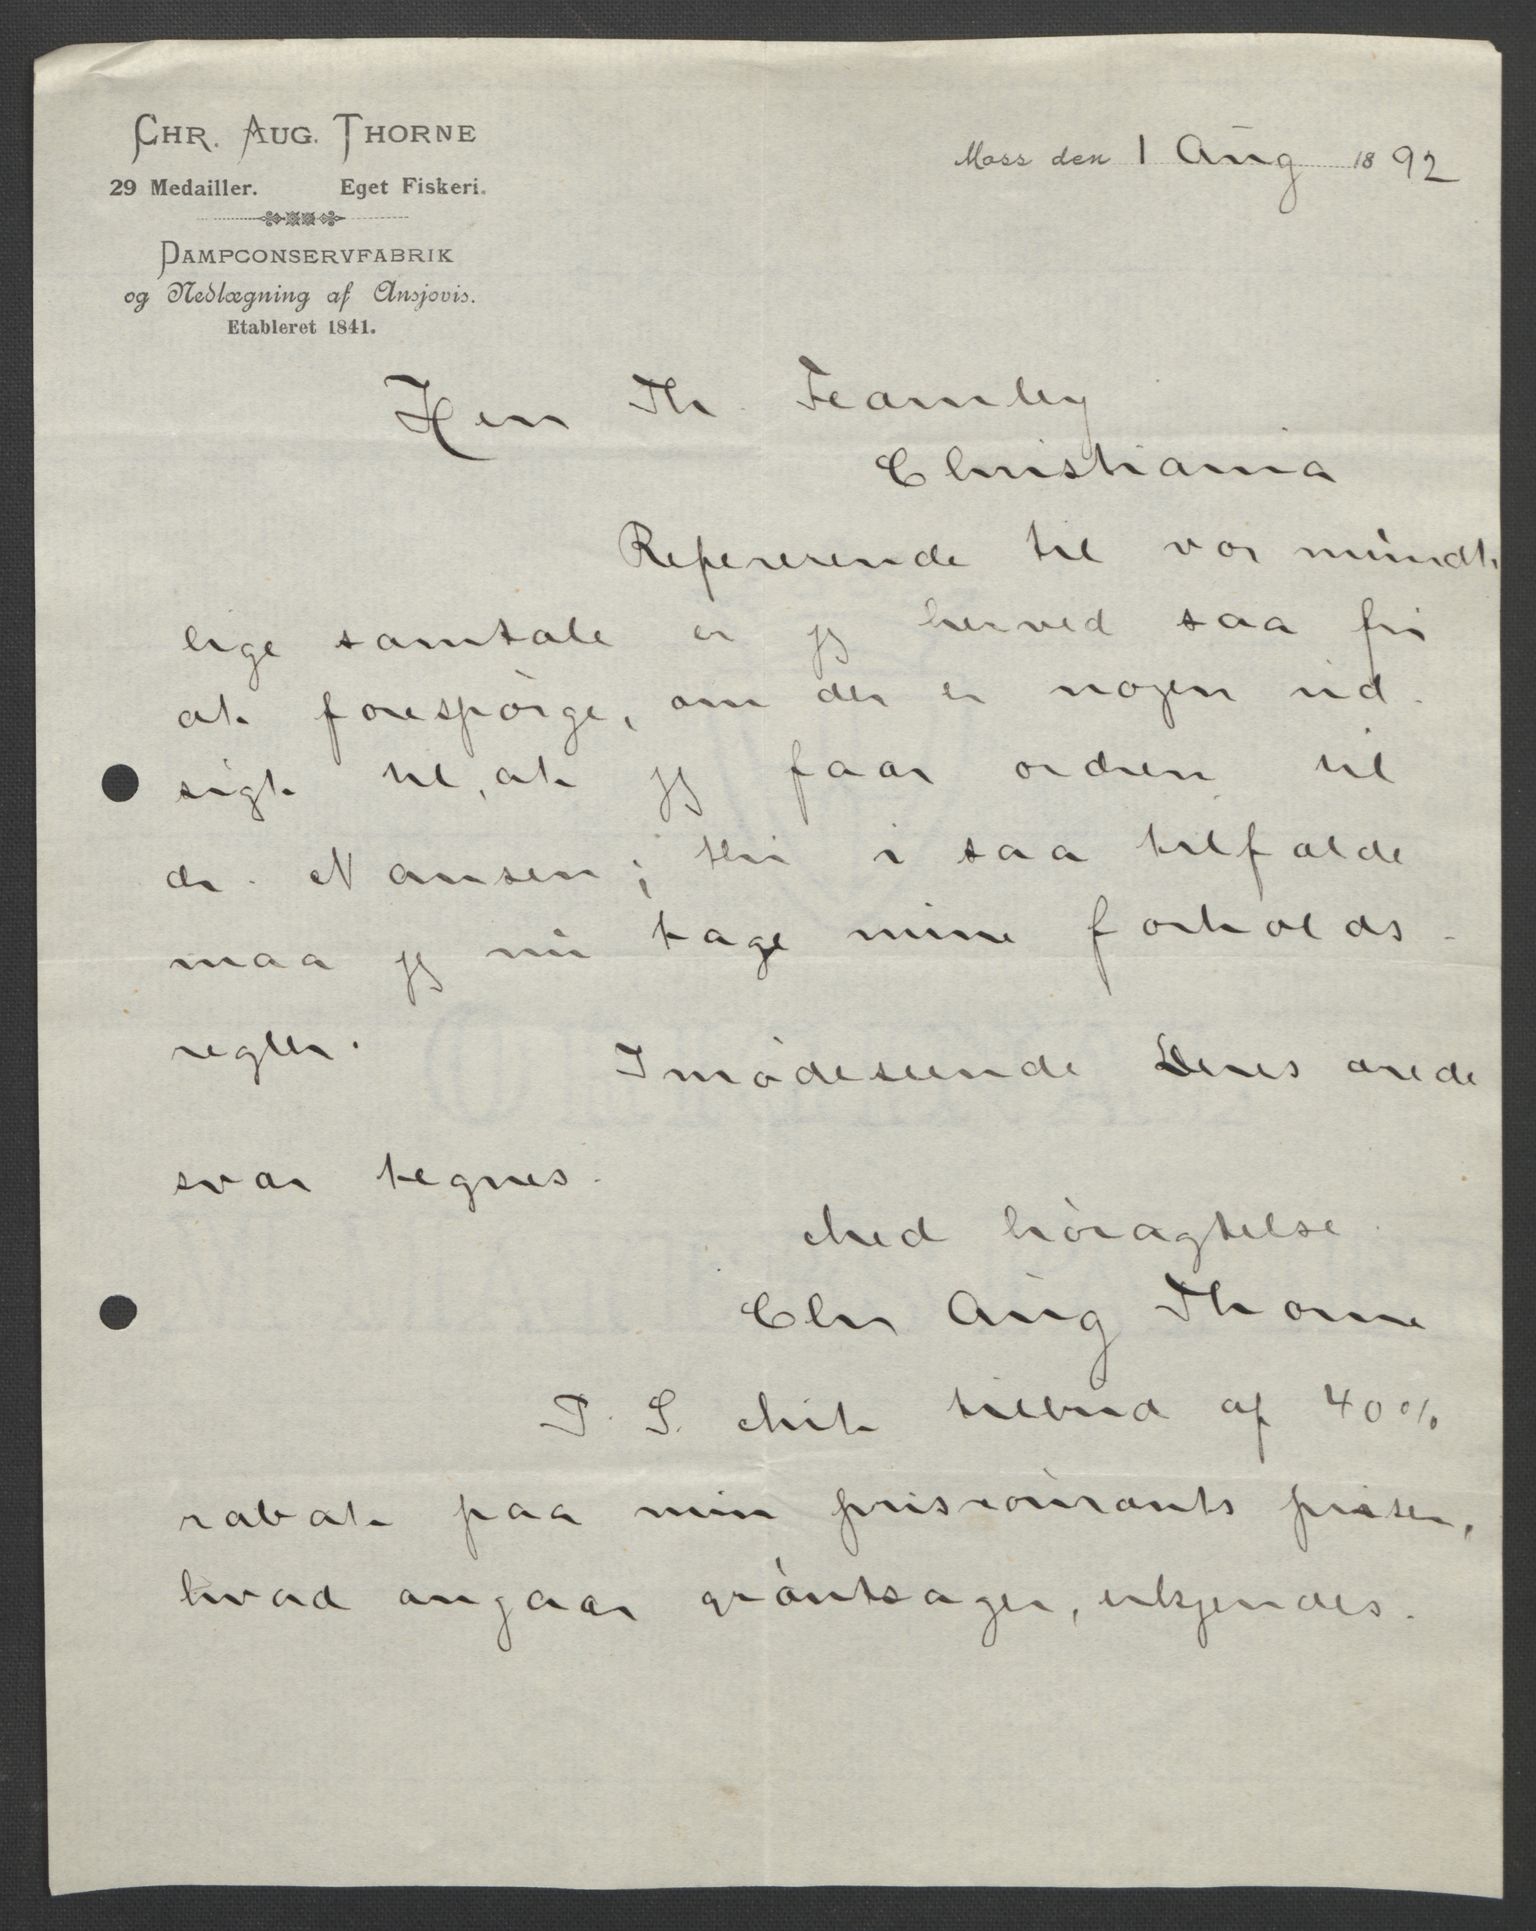 CHR. AUG. THORNE
29 Medailler. Eget Fiskeri.
DAMPCONSERVFABRIK
og Nedlægning af Ansjovis.
Etableret 1841.
Moss den 1 Aug 1892
Herr Th. Fearnley
Christiania
Refererende til vor mundt-
lige samtale er jeg herved saa fri
at forespørge, om der er nogen ud-
sigt til, at jeg faar ordren til
dr. Nansen; thi i saa tilfælde
maa jeg nu tage mine forholds-
regler.
Imødeseende Deres ærede
svar tegnes.
Med høiagtelse
Chr Aug Thorne
P. S. Mit tilbud af 40%
rabat paa min priscourants priser,
hvad angaar grøntsager, erkjendes.